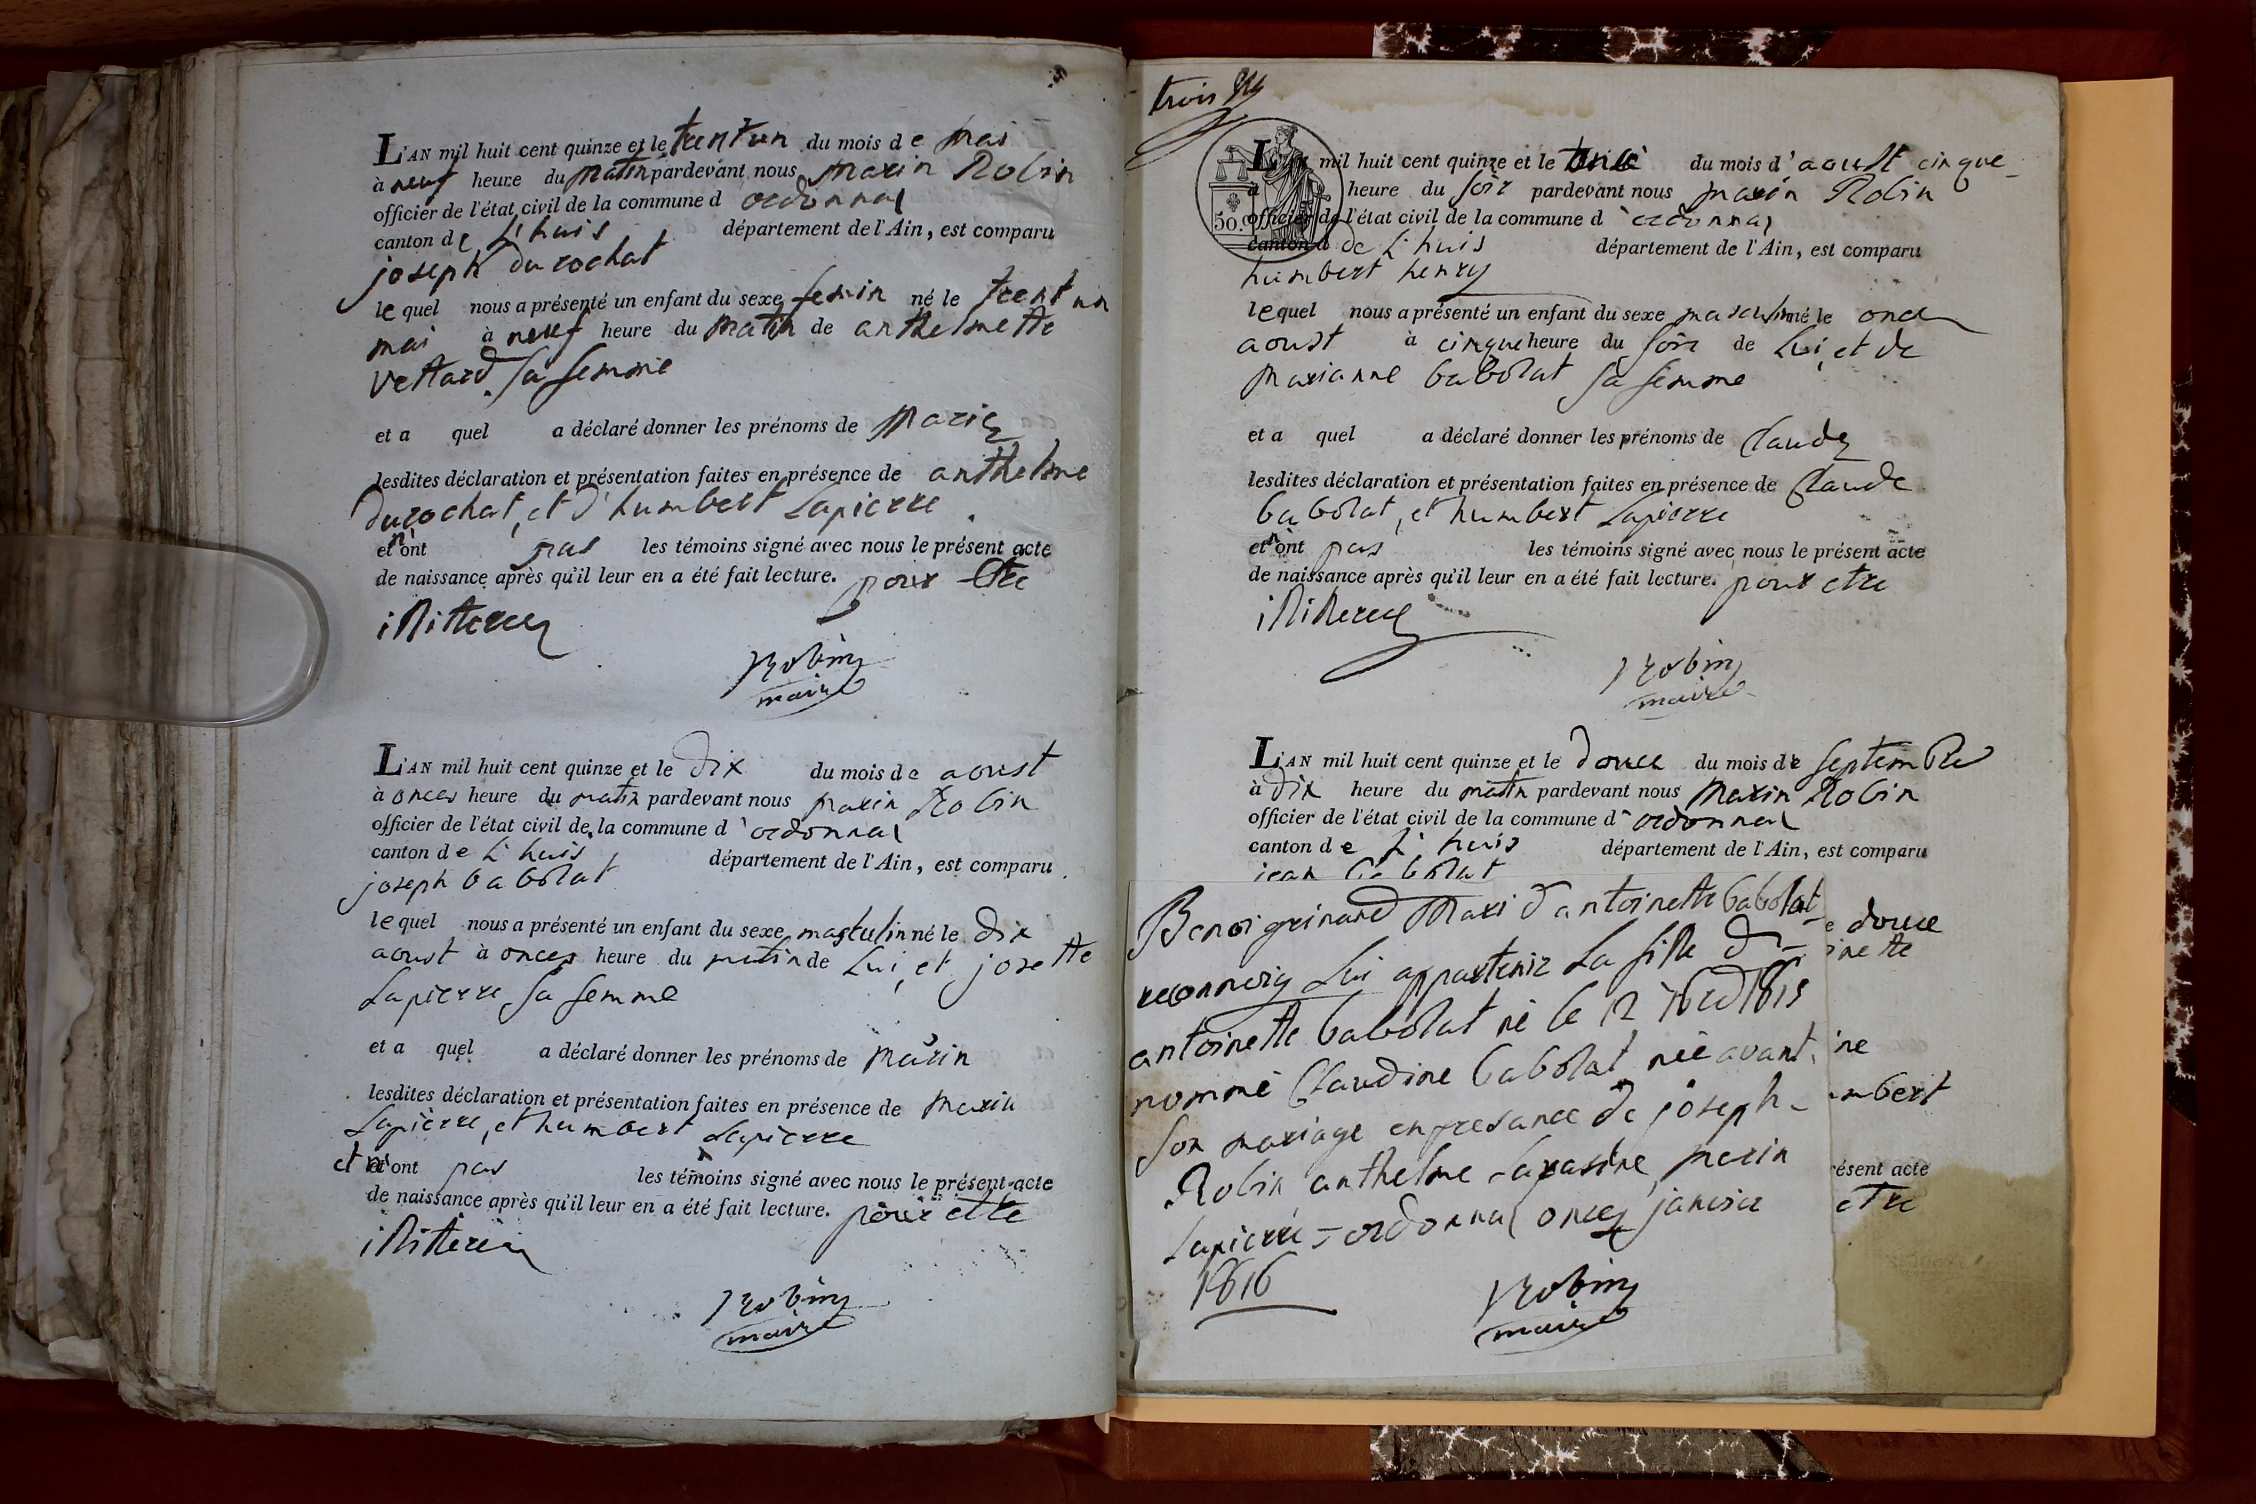 L'AN mil huit cent quinze et le trentun du mois de mai
à neuf heure du matin pardevant nous marin Robin
officier de l'état civil de la commune d ordonnas
canton de L'huis département de l'Ain, est comparu
joseph durochat
lequel nous a présenté un enfant du sexe femin né le trentun
mai à neuf heure du matin de anthelmette
vettard sa femme
et a quel a déclaré donner les prénoms de marie
lesdites déclaration et présentation faites en présence de anthelme
durochat, et d'humbert Lapierre
et n'ont pas les témoins signé avec nous le présent acte
de naissance après qu'il leur en a été fait lecture. pour etre
illiteree
Robin
maire
L'AN mil huit cent quinze et le dix du mois de aoust
à onces heure du matin pardevant nous marin Robin
officier de l'état civil de la commune d'ordonnas
canton de L'huis département de l'Ain, est comparu
joseph babolat
lequel nous a présenté un enfant du sexe masculin né le dix
aoust à onces heure du matin de Lui, et josette
Lapierre sa femme
et a quel a déclaré donner les prénoms de marin
lesdites déclaration et présentation faites en présence de marin
Lapierre, et humbert Lapierre
et n'ont pas les témoins signé avec nous le présent acte
de naissance après qu'il leur en a été fait lecture. pour etre
illiteree
Robin
maire
trois
50.c
L'AN mil huit cent quinze et le once du mois d'aoust cinque
à heure du soir pardevant nous marin Robin
officier de l'état civil de la commune d'ordonnas
canton d de L'huis département de l'Ain, est comparu
humbert henry
lequel nous a présenté un enfant du sexe masculin né le once
aoust à cinque heure du soir de Lui, et de
marianne babolat sa femme
et a quel a déclaré donner les prénoms de Claude
lesdites déclaration et présentation faites en présence de Claude
babolat, et humbert Lapierre
et n'ont pas les témoins signé avec nous le présent acte
de naissance après qu'il leur en a été fait lecture. pour etre
illiteree
Robin
maire
L'AN mil huit cent quinze et le douce du mois de septembre
à dix heure du matin pardevant nous marin Robin
officier de l'état civil de la commune d'ordonnas
canton de L'huis département de l'Ain, est comparu
jean babolat
e douce
inette
ine
mbert
résent acte
etre
Benoi grinand mari d'antoinette babolat
reconnoiy Lui appartenir La fille d'
antoinette babolat né le 12 7bre 1815
nommé Claudine babolat née avant
son mariage en presance de joseph
Robin anthelme Sarasine marin
Lapierre = ordonnas onces janvier
1816
Robin
maire